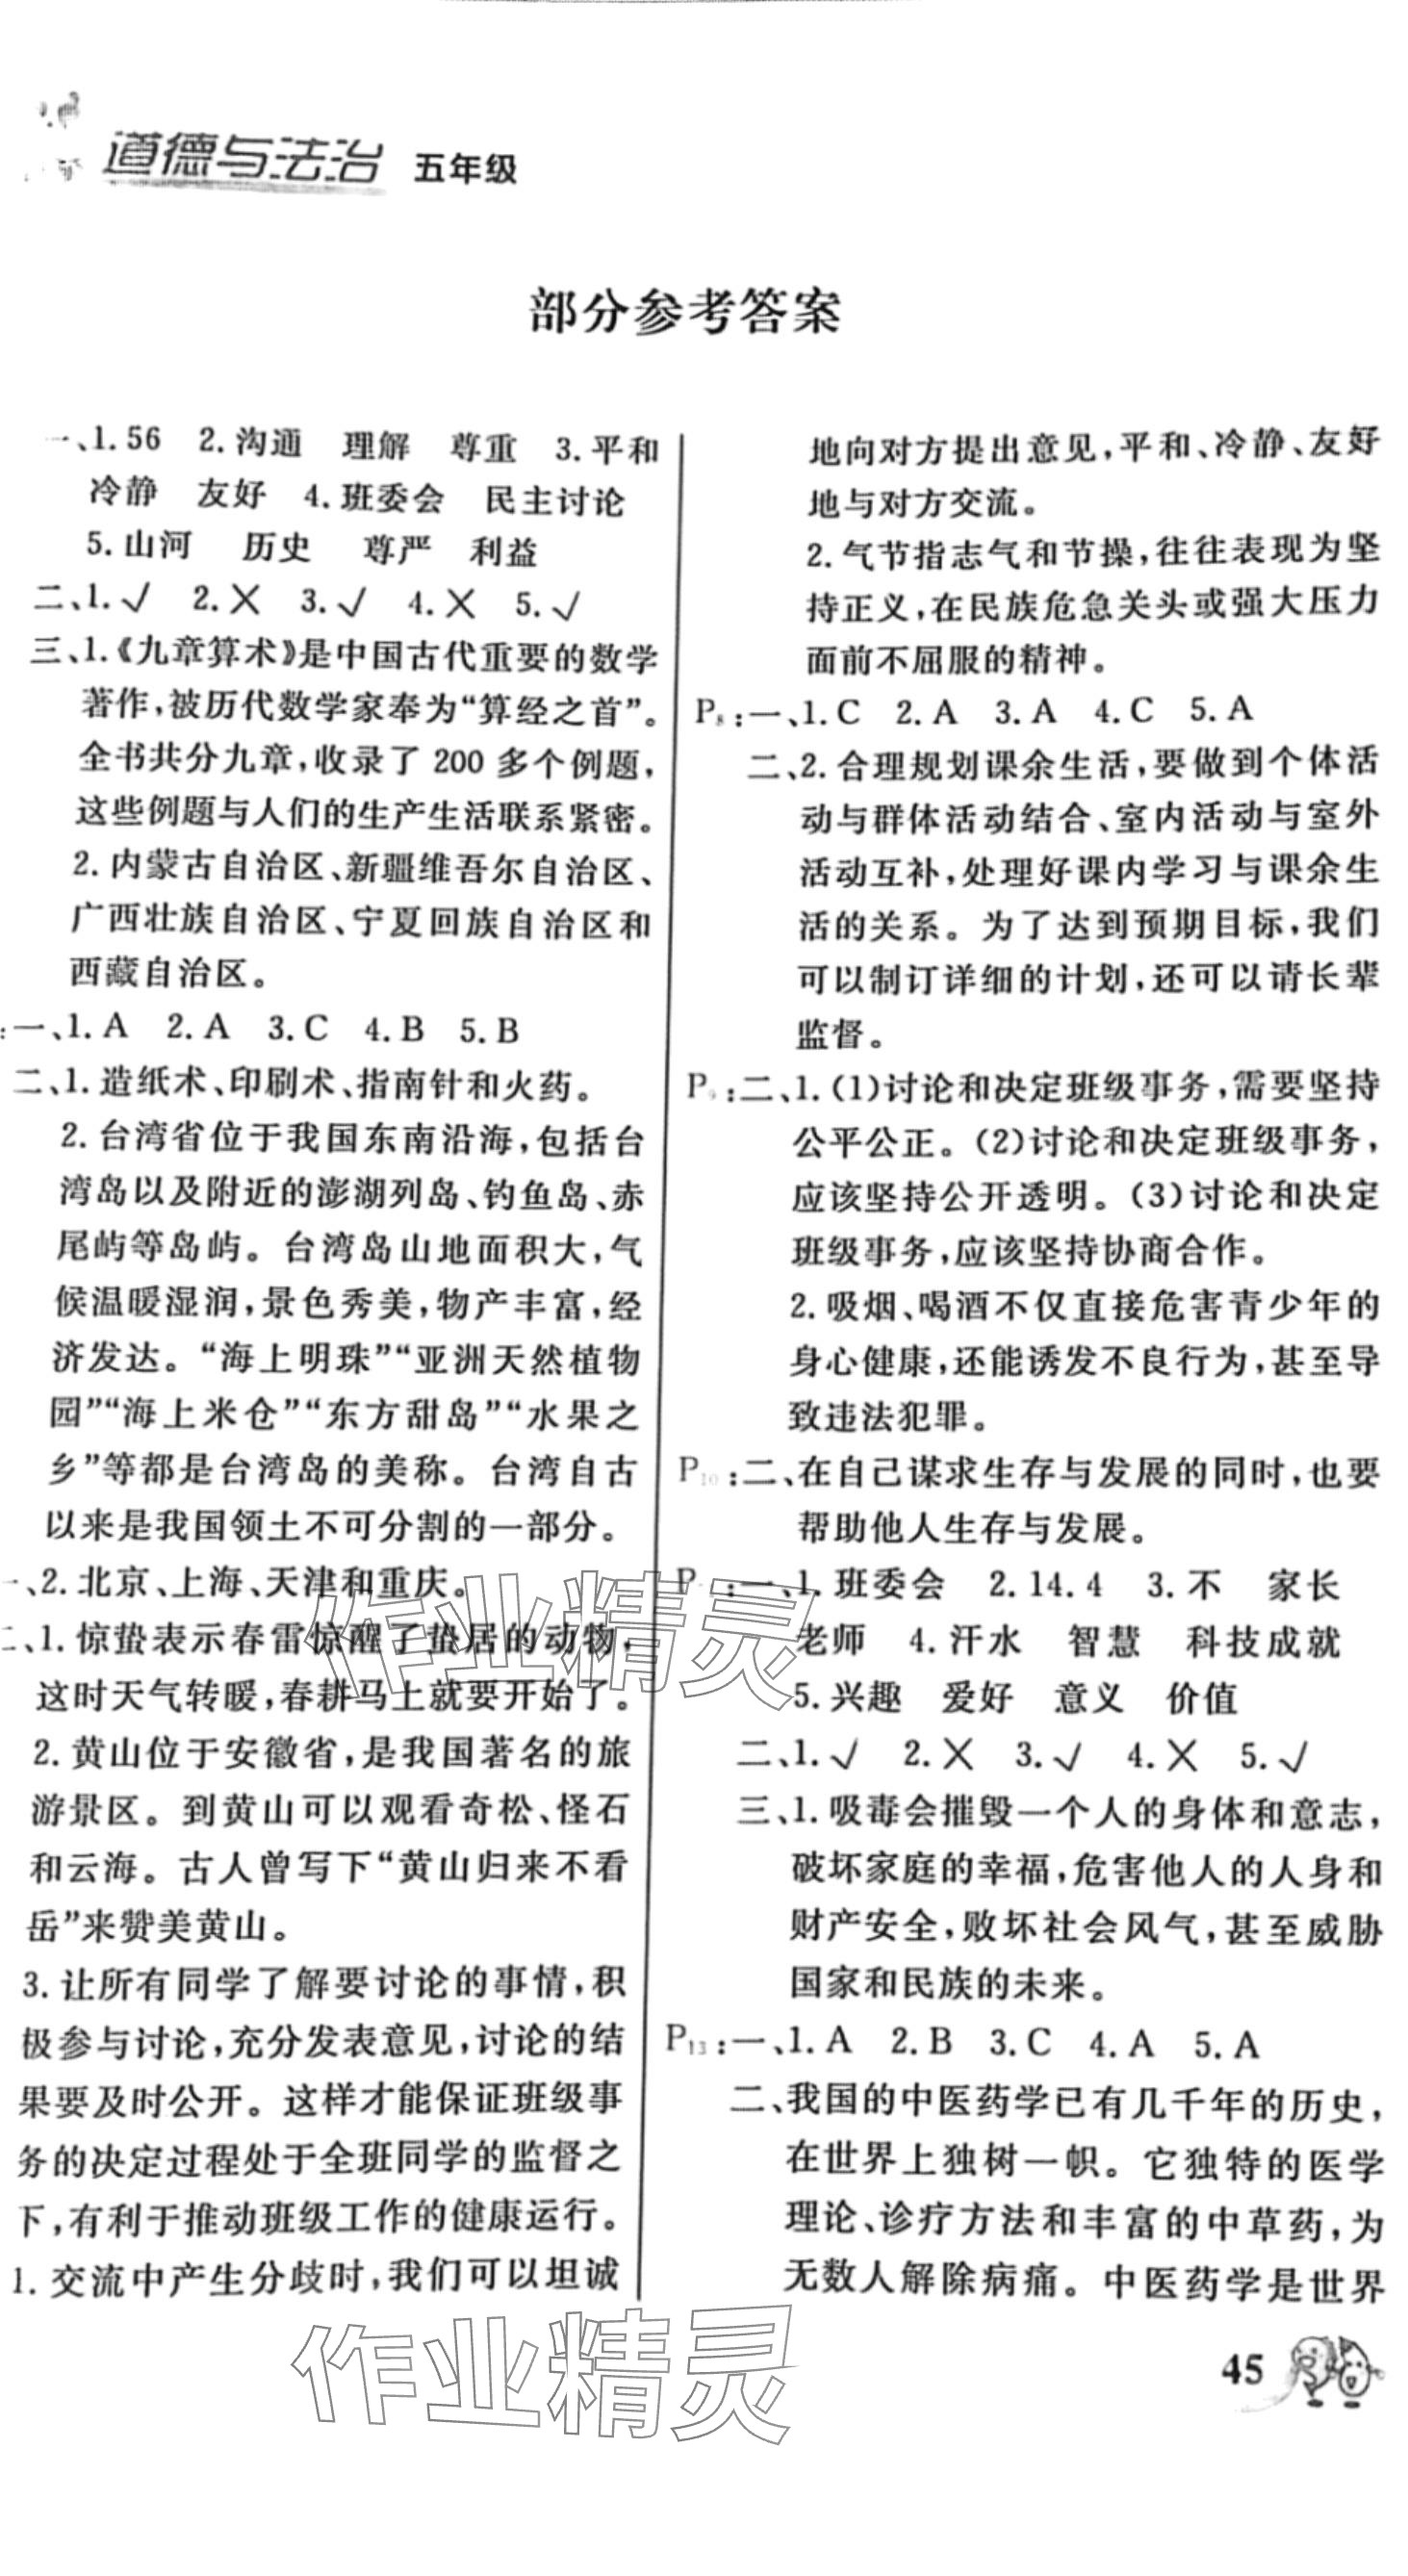 道德与法治 五年级
部分参考答案
一、1.56 2.沟通 理解 尊重 3.平和
冷静 友好 4.班委会 民主讨论
5.山河 历史 尊严 利益
二、1.√ 2.× 3.√ 4.× 5.√
三、1.《九章算术》是中国古代重要的数学
著作,被历代数学家奉为“算经之首”。
全书共分九章,收录了 200 多个例题,
这些例题与人们的生产生活联系紧密。
2.内蒙古自治区、新疆维吾尔自治区、
广西壮族自治区、宁夏回族自治区和
西藏自治区。
:一、1. A 2. A 3. C 4. B 5. B
二、1.造纸术、印刷术、指南针和火药。
2.台湾省位于我国东南沿海,包括台
湾岛以及附近的澎湖列岛、钓鱼岛、赤
尾屿等岛屿。台湾岛山地面积大,气
候温暖湿润,景色秀美,物产丰富,经
济发达。“海上明珠”“亚洲天然植物
园”“海上米仓”“东方甜岛”“水果之
乡”等都是台湾岛的美称。台湾自古
以来是我国领土不可分割的一部分。
、2.北京、上海、天津和重庆。
、1.惊蛰表示春雷惊醒了蛰居的动物,
这时天气转暖,春耕马上就要开始了。
2.黄山位于安徽省,是我国著名的旅
游景区。到黄山可以观看奇松、怪石
和云海。古人曾写下“黄山归来不看
岳”来赞美黄山。
3.让所有同学了解要讨论的事情,积
极参与讨论,充分发表意见,讨论的结
果要及时公开。这样才能保证班级事
务的决定过程处于全班同学的监督之
下,有利于推动班级工作的健康运行。
1.交流中产生分歧时,我们可以坦诚
地向对方提出意见,平和、冷静、友好
地与对方交流。
2.气节指志气和节操,往往表现为坚
持正义,在民族危急关头或强大压力
面前不屈服的精神。
P8:一、1. C 2. A 3. A 4. C 5. A
二、2.合理规划课余生活,要做到个体活
动与群体活动结合、室内活动与室外
活动互补,处理好课内学习与课余生
活的关系。为了达到预期目标,我们
可以制订详细的计划,还可以请长辈
监督。
P9:二、1.(1)讨论和决定班级事务,需要坚持
公平公正。(2)讨论和决定班级事务,
应该坚持公开透明。(3)讨论和决定
班级事务,应该坚持协商合作。
2.吸烟、喝酒不仅直接危害青少年的
身心健康,还能诱发不良行为,甚至导
致违法犯罪。
P10:二、在自己谋求生存与发展的同时,也要
帮助他人生存与发展。
P:一、1.班委会 2.14.4 3.不 家长
老师 4.汗水 智慧 科技成就
5.兴趣 爱好 意义 价值
二、1.√ 2.× 3.√ 4.× 5.√
三、1.吸毒会摧毁一个人的身体和意志,
破坏家庭的幸福,危害他人的人身和
财产安全,败坏社会风气,甚至威胁
国家和民族的未来。
P13:一、1. A 2. B 3. C 4. A 5. A
二、我国的中医药学已有几千年的历史,
在世界上独树一帜。它独特的医学
理论、诊疗方法和丰富的中草药,为
无数人解除病痛。中医药学是世界
作业精灵
作业精灵
45